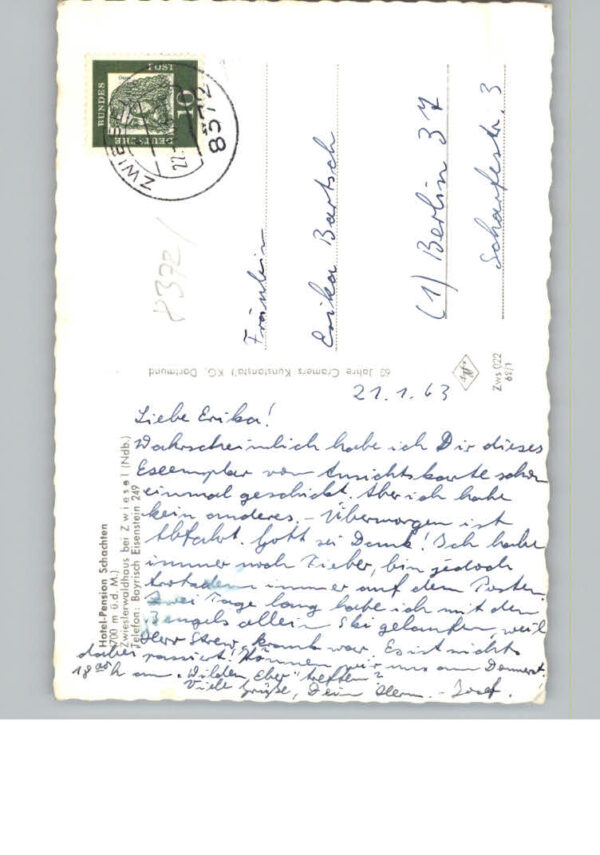 BUNDES
POST
DEUTSCHE
10
ZWIESEL
8372
22.
8372
Fräulein
Erika Bartsch
(1) Berlin 37
Scharfestr. 3
63 Jahre Cramers Kunstanstalt KG, Dortmund
Zws 022
62/1
Hotel-Pension Schachten
(700 m ü. d. M.)
Zwieslerwaldhaus bei Zwiesel (Ndb.)
Telefon: Bayrisch Eisenstein 249
21.1.63
Liebe Erika!
Wahrscheinlich habe ich Dir dieses
Exemplar von Ansichtskarte schon
einmal geschickt. Aber ich habe
kein anderes. - Übermorgen ist
Abfahrt. Gott sei Dank! Ich habe
immer noch Fieber, bin jedoch
trotzdem immer auf dem Posten.
Zwei Tage lang habe ich mit den
Bengels allein Ski gelaufen, weil
Herr krank war. Es ist nichts
dabei passiert! Können wir uns am Donnerst.
18 00 h am "Wilden Eber" treffen?
Viele Grüße, Dein Josef.